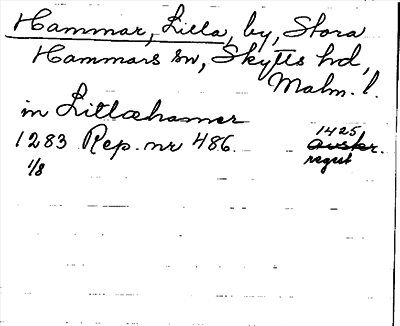 Hammar, Lilla, by, Stora
Hammars sn, Skytts hd,
Malm. l.
in Litlæhamer
1283 Rep. nr 486. 1425
avskr.
regest
1/8